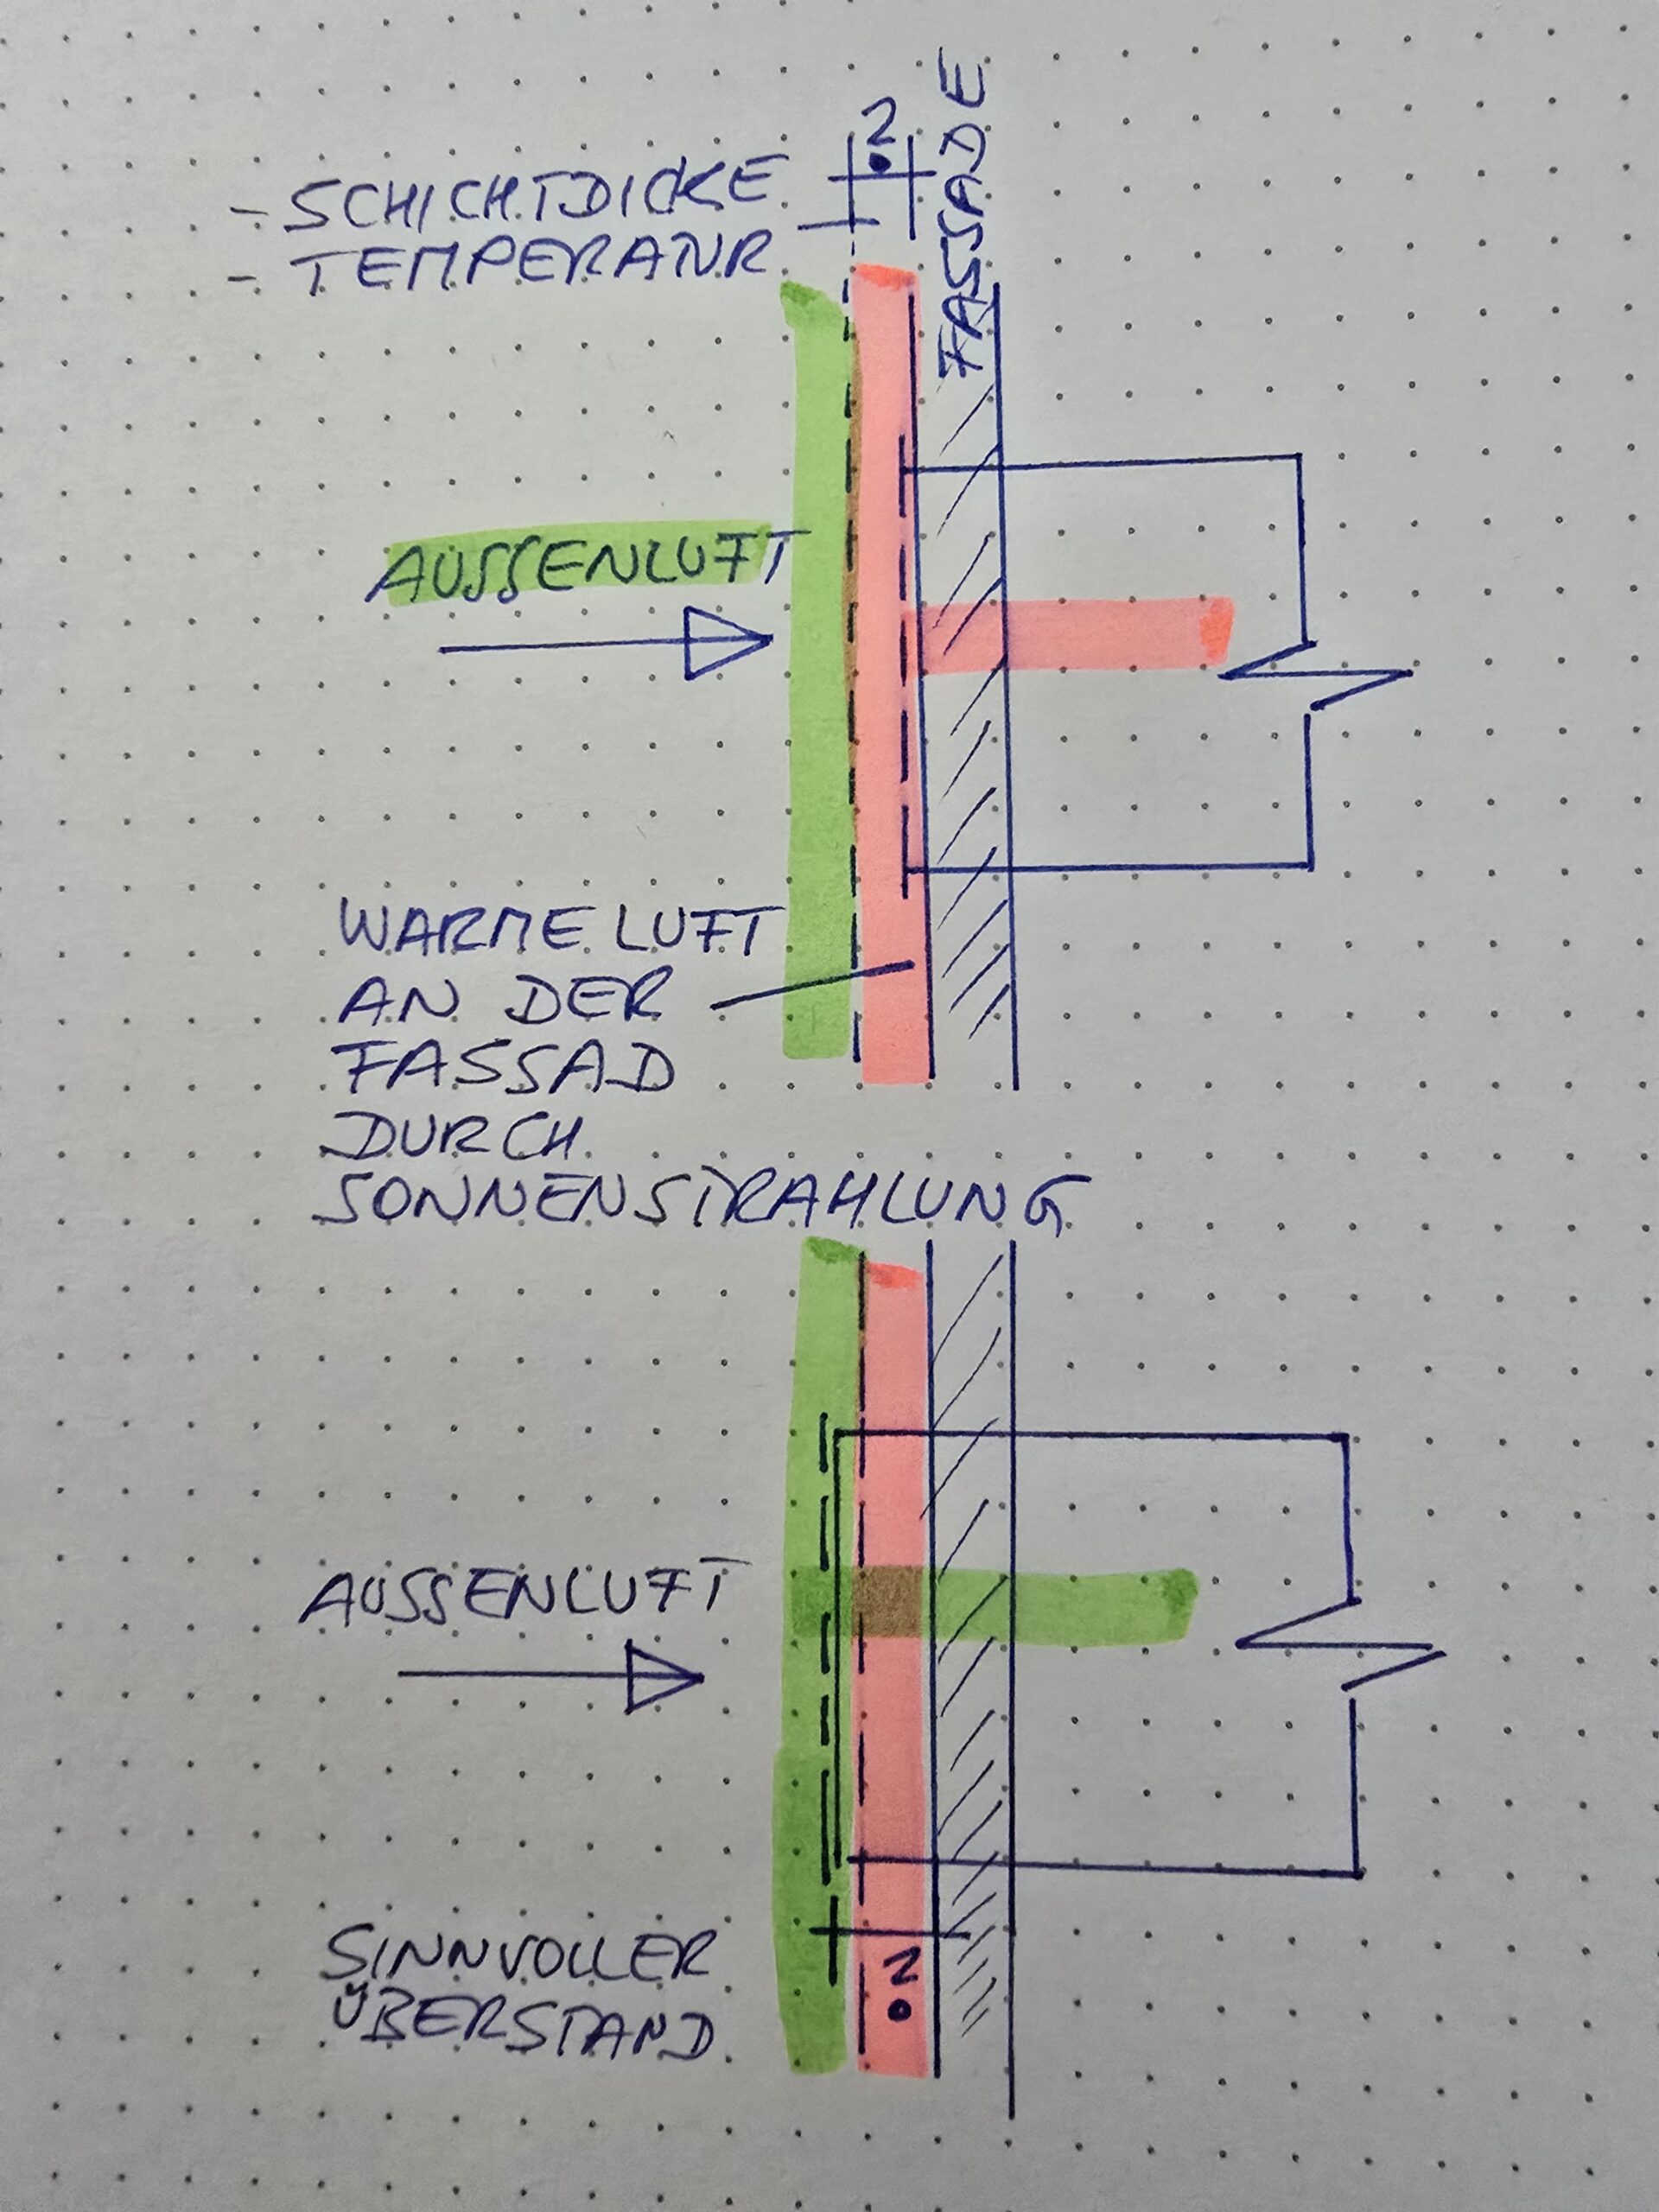 ?
FASSADE
- SCHICHTDICKE
- TEMPERANR
AUSSENLUFT
WARME LUFT
AN DER
FASSAD
DURCH
SONNENSTRAHLUNG
AUSSENLUFT
SINNVOLLER
ÜBERSTAND
?